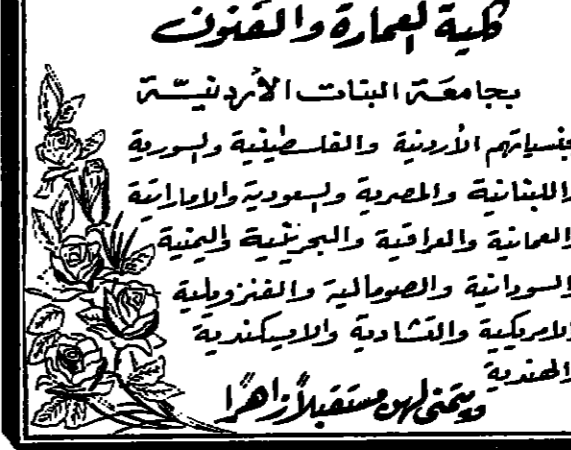 كلية العمارة والفنون
بجامعة البنات الأردنيــة
جنسياتهم الأردنية والفلسطينية والسورية
واللبنانية والمصرية والسعودية والاماراتية
والعمانية والعراقية والبحرينية واليمنية
والسودانية والصومالية والفنزويلية
والامريكية والتشادية والاسيكندرية
والهندية
ويتمنى لهن مستقبلاً زاهرًا